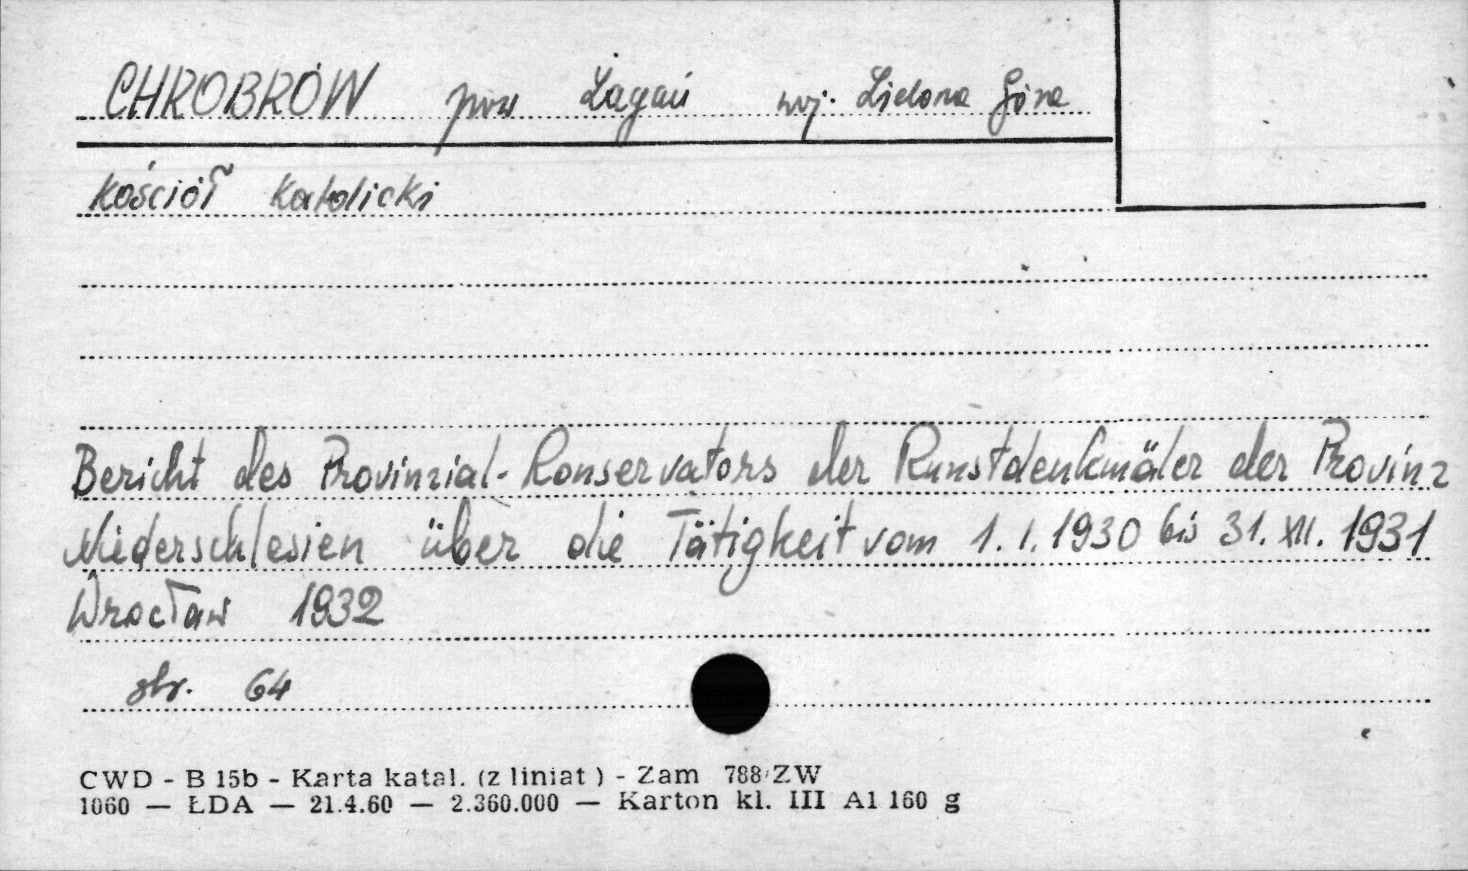 CHROBRÓW pow Żagań woj. Zielona Góra
Kościół Katolicki
Bericht des Provinzial-Konservators der Kunstdenkmäler der Provinz
Niederschlesien über die Tätigkeit vom 1.I.1930 bis 31.XII.1931
Wrocław 1932
str. 64
CWD - B 15b - Karta katal. (z liniat ) - Zam 788/ZW
1060 — ŁDA — 21.4.60 — 2.360.000 — Karton kl. III A1 160 g